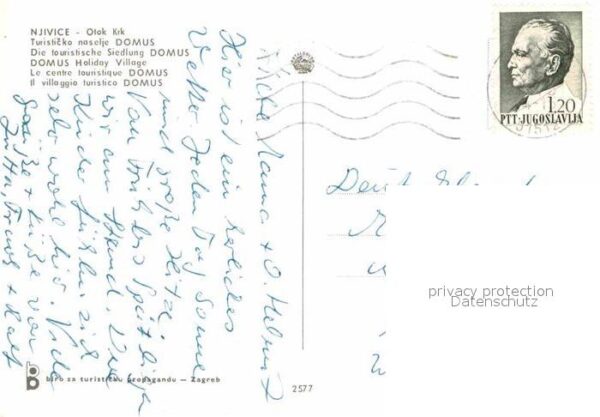 NJIVICE - Otok Krk
Turističko naselje DOMUS
Die touristische Siedlung DOMUS
DOMUS Holiday Village
Le centre touristique DOMUS
Il villaggio turistico DOMUS
1.20
PTT-JUGOSLAVIJA
Liebe Mama + O. Helmut
Hier ist ein herrliches
Wetter. Jeden Tag Sonne
und große Hitze.
Von früh bis spät liegen
wir am Strand. Die
Kinder fühlen sich
sehr wohl hier. Viele
Grüße + Küße von
+ Ralf
Deutschland
privacy protection
Datenschutz
biro za turističku propagandu — Zagreb
2577